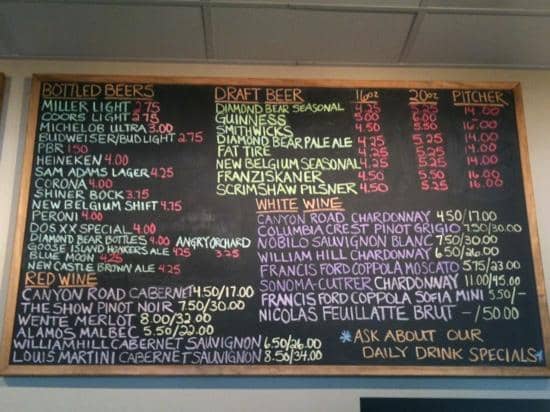 BOTTLED BEERS
MILLER LIGHT 2.75
COORS LIGHT 2.75
MICHELOB ULTRA 3.00
BUDWEISER/BUD LIGHT 2.75
PBR 1.50
HEINEKEN 4.00
SAM ADAMS LAGER 4.25
CORONA 4.00
SHINER BOCK 3.75
NEW BELGIUM SHIFT 4.75
PERONI 4.00
DOS XX SPECIAL 4.00
DIAMOND BEAR BOTTLES 4.00
GOOSE ISLAND HONKERS ALE 4.25
BLUE MOON 4.25
NEW CASTLE BROWN ALE 4.25
ANGRY ORCHARD
3.25
RED WINE
CANYON ROAD CABERNET 4.50/17.00
THE SHOW PINOT NOIR 7.50/30.00
WENTE MERLOT 8.00/32.00
ALAMOS MALBEC 5.50/22.00
WILLIAM HILL CABERNET SAUVIGNON 6.50/26.00
LOUIS MARTINI CABERNET SAUVIGNON 8.50/34.00
DRAFT BEER 16oz 20oz PITCHER
DIAMOND BEAR SEASONAL 4.25 5.25 14.00
GUINNESS 5.00 6.00
SMITHWICKS 4.50 5.50 16.00
DIAMOND BEAR PALE ALE 4.25 5.25 14.00
FAT TIRE 4.25 5.25 14.00
NEW BELGIUM SEASONAL 4.25 5.25 14.00
FRANZISKANER 4.50 5.50 16.00
SCRIMSHAW PILSNER 4.50 5.25 16.00
WHITE WINE
CANYON ROAD CHARDONNAY 4.50/17.00
COLUMBIA CREST PINOT GRIGIO 7.50/30.00
NOBILO SAUVIGNON BLANC 7.50/30.00
WILLIAM HILL CHARDONNAY 6.50/26.00
FRANCIS FORD COPPOLA MOSCATO 5.75/23.00
SONOMA-CUTRER CHARDONNAY 11.00/45.00
FRANCIS FORD COPPOLA SOFIA MINI 5.50/-
NICOLAS FEUILLATTE BRUT -/50.00
*ASK ABOUT OUR
DAILY DRINK SPECIALS*